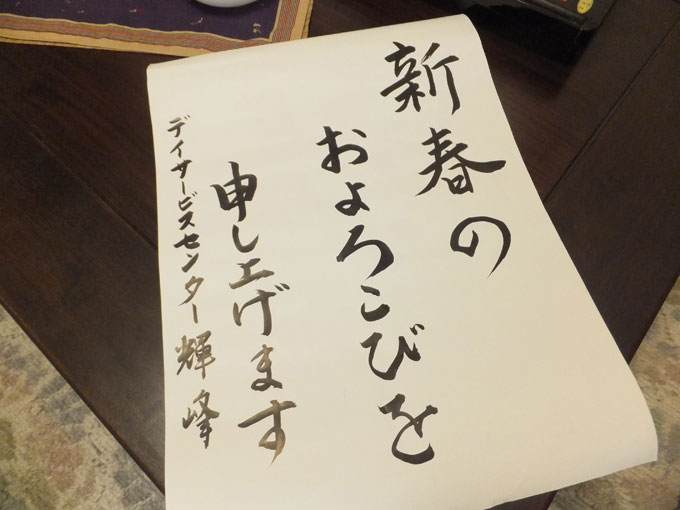 新春の
およろこびを
申し上げます
デイサービスセンター輝峰